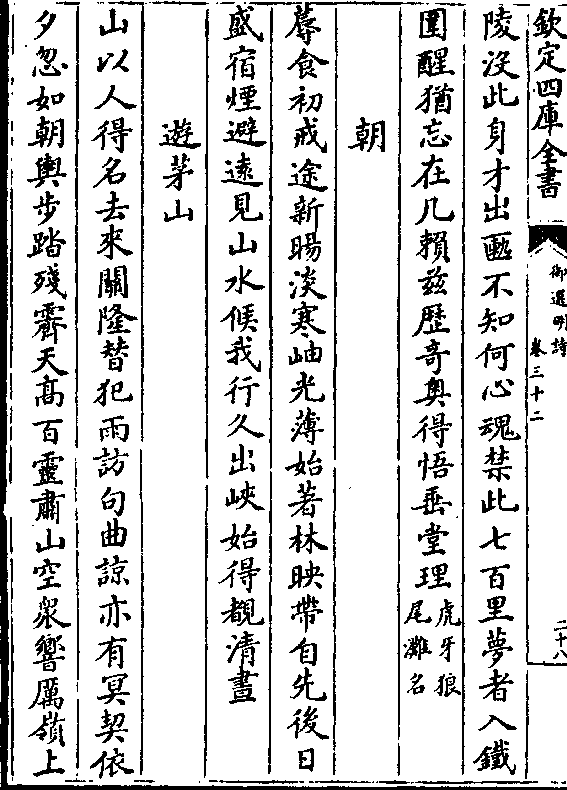 欽定四庫全書
御選明詩
卷三十二
二十八
陵没此身才出匭不知何心魂禁此七百里夢者入鐵
圍醒猶忘在几賴兹歴竒奥得悟垂堂理虎牙狼尾灘名
朝
蓐食初戒途新暘淡寒岫光薄始著林映帶自先後日
盛宿煙避逺見山水候我行久出峽始得覩清晝
遊茅山
山以人得名去來關隆替犯雨訪句曲諒亦有冥契依
夕忽如朝輿步踏殘霽天髙百靈肅山空衆響厲嶺上